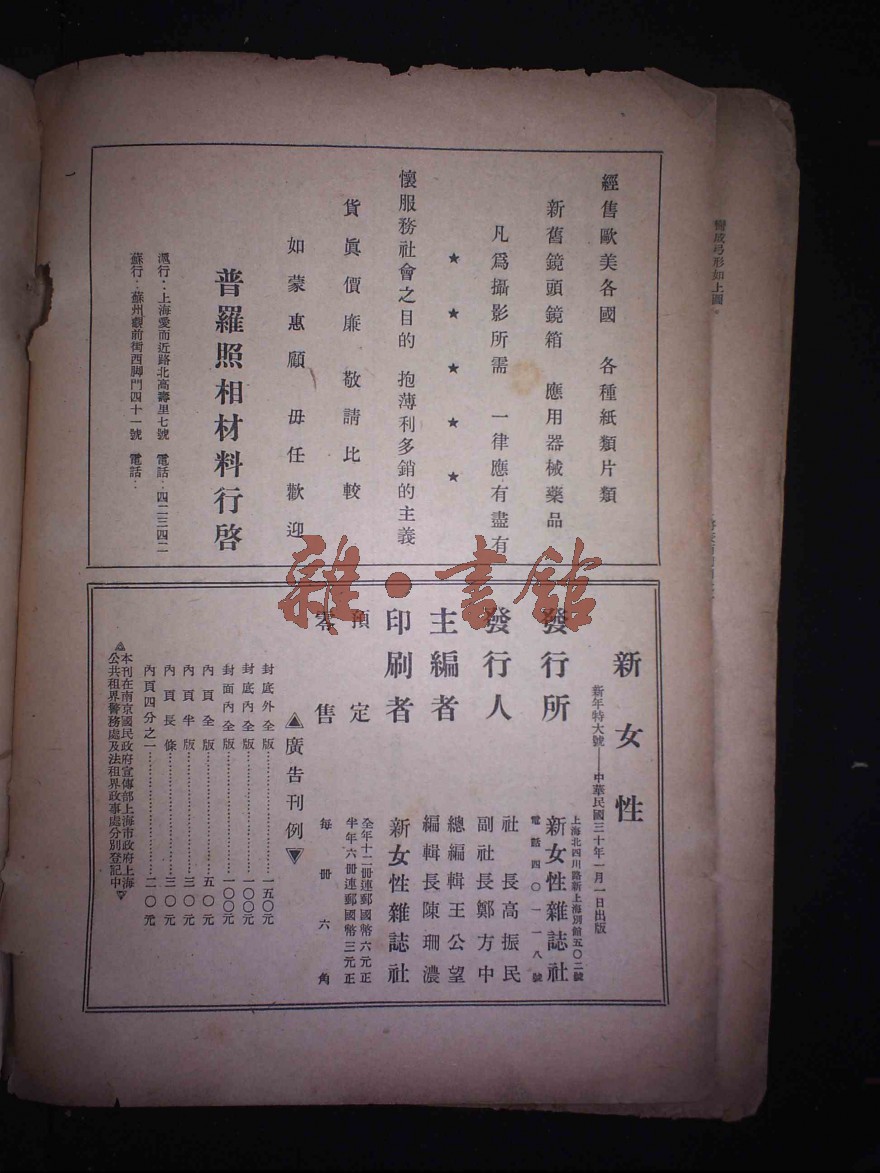 經售歐美各國 各種紙類片類
新舊鏡頭鏡箱 應用器械藥品
凡爲攝影所需 一律應有盡有
★ ★ ★ ★ ★
懷服務社會之目的 抱薄利多銷的主義
貨眞價廉 敬請比較
如蒙惠顧 毋任歡迎
普羅照相材料行啓
滬行：上海愛而近路北高壽里七號 電話：四二三四二
蘇行：蘇州觀前街西脚門四十一號 電話：
雜·書館
新女性
新年特大號——中華民國三十年一月一日出版
發行所
上海北四川路新上海別館五〇二號
新女性雜誌社
電話四〇一一八號
發行人
社長高振民
副社長鄭方中
主編者
總編輯王公望
編輯長陳珊濃
印刷者 新女性雜誌社
預定
全年十二冊連郵國幣六元正
半年六冊連郵國幣三元正
零售 每冊六角
▲廣告刊例▼
封底外全版……一五〇元
封底內全版……一〇〇元
封面內全版……一〇〇元
內頁全版……五〇元
內頁半版……三〇元
內頁長條……三〇元
內頁四分之一……二〇元
本刊在南京國民政府宣傳部上海市政府上海
公共租界警務處及法租界政事處分別登記中
形如上圖。